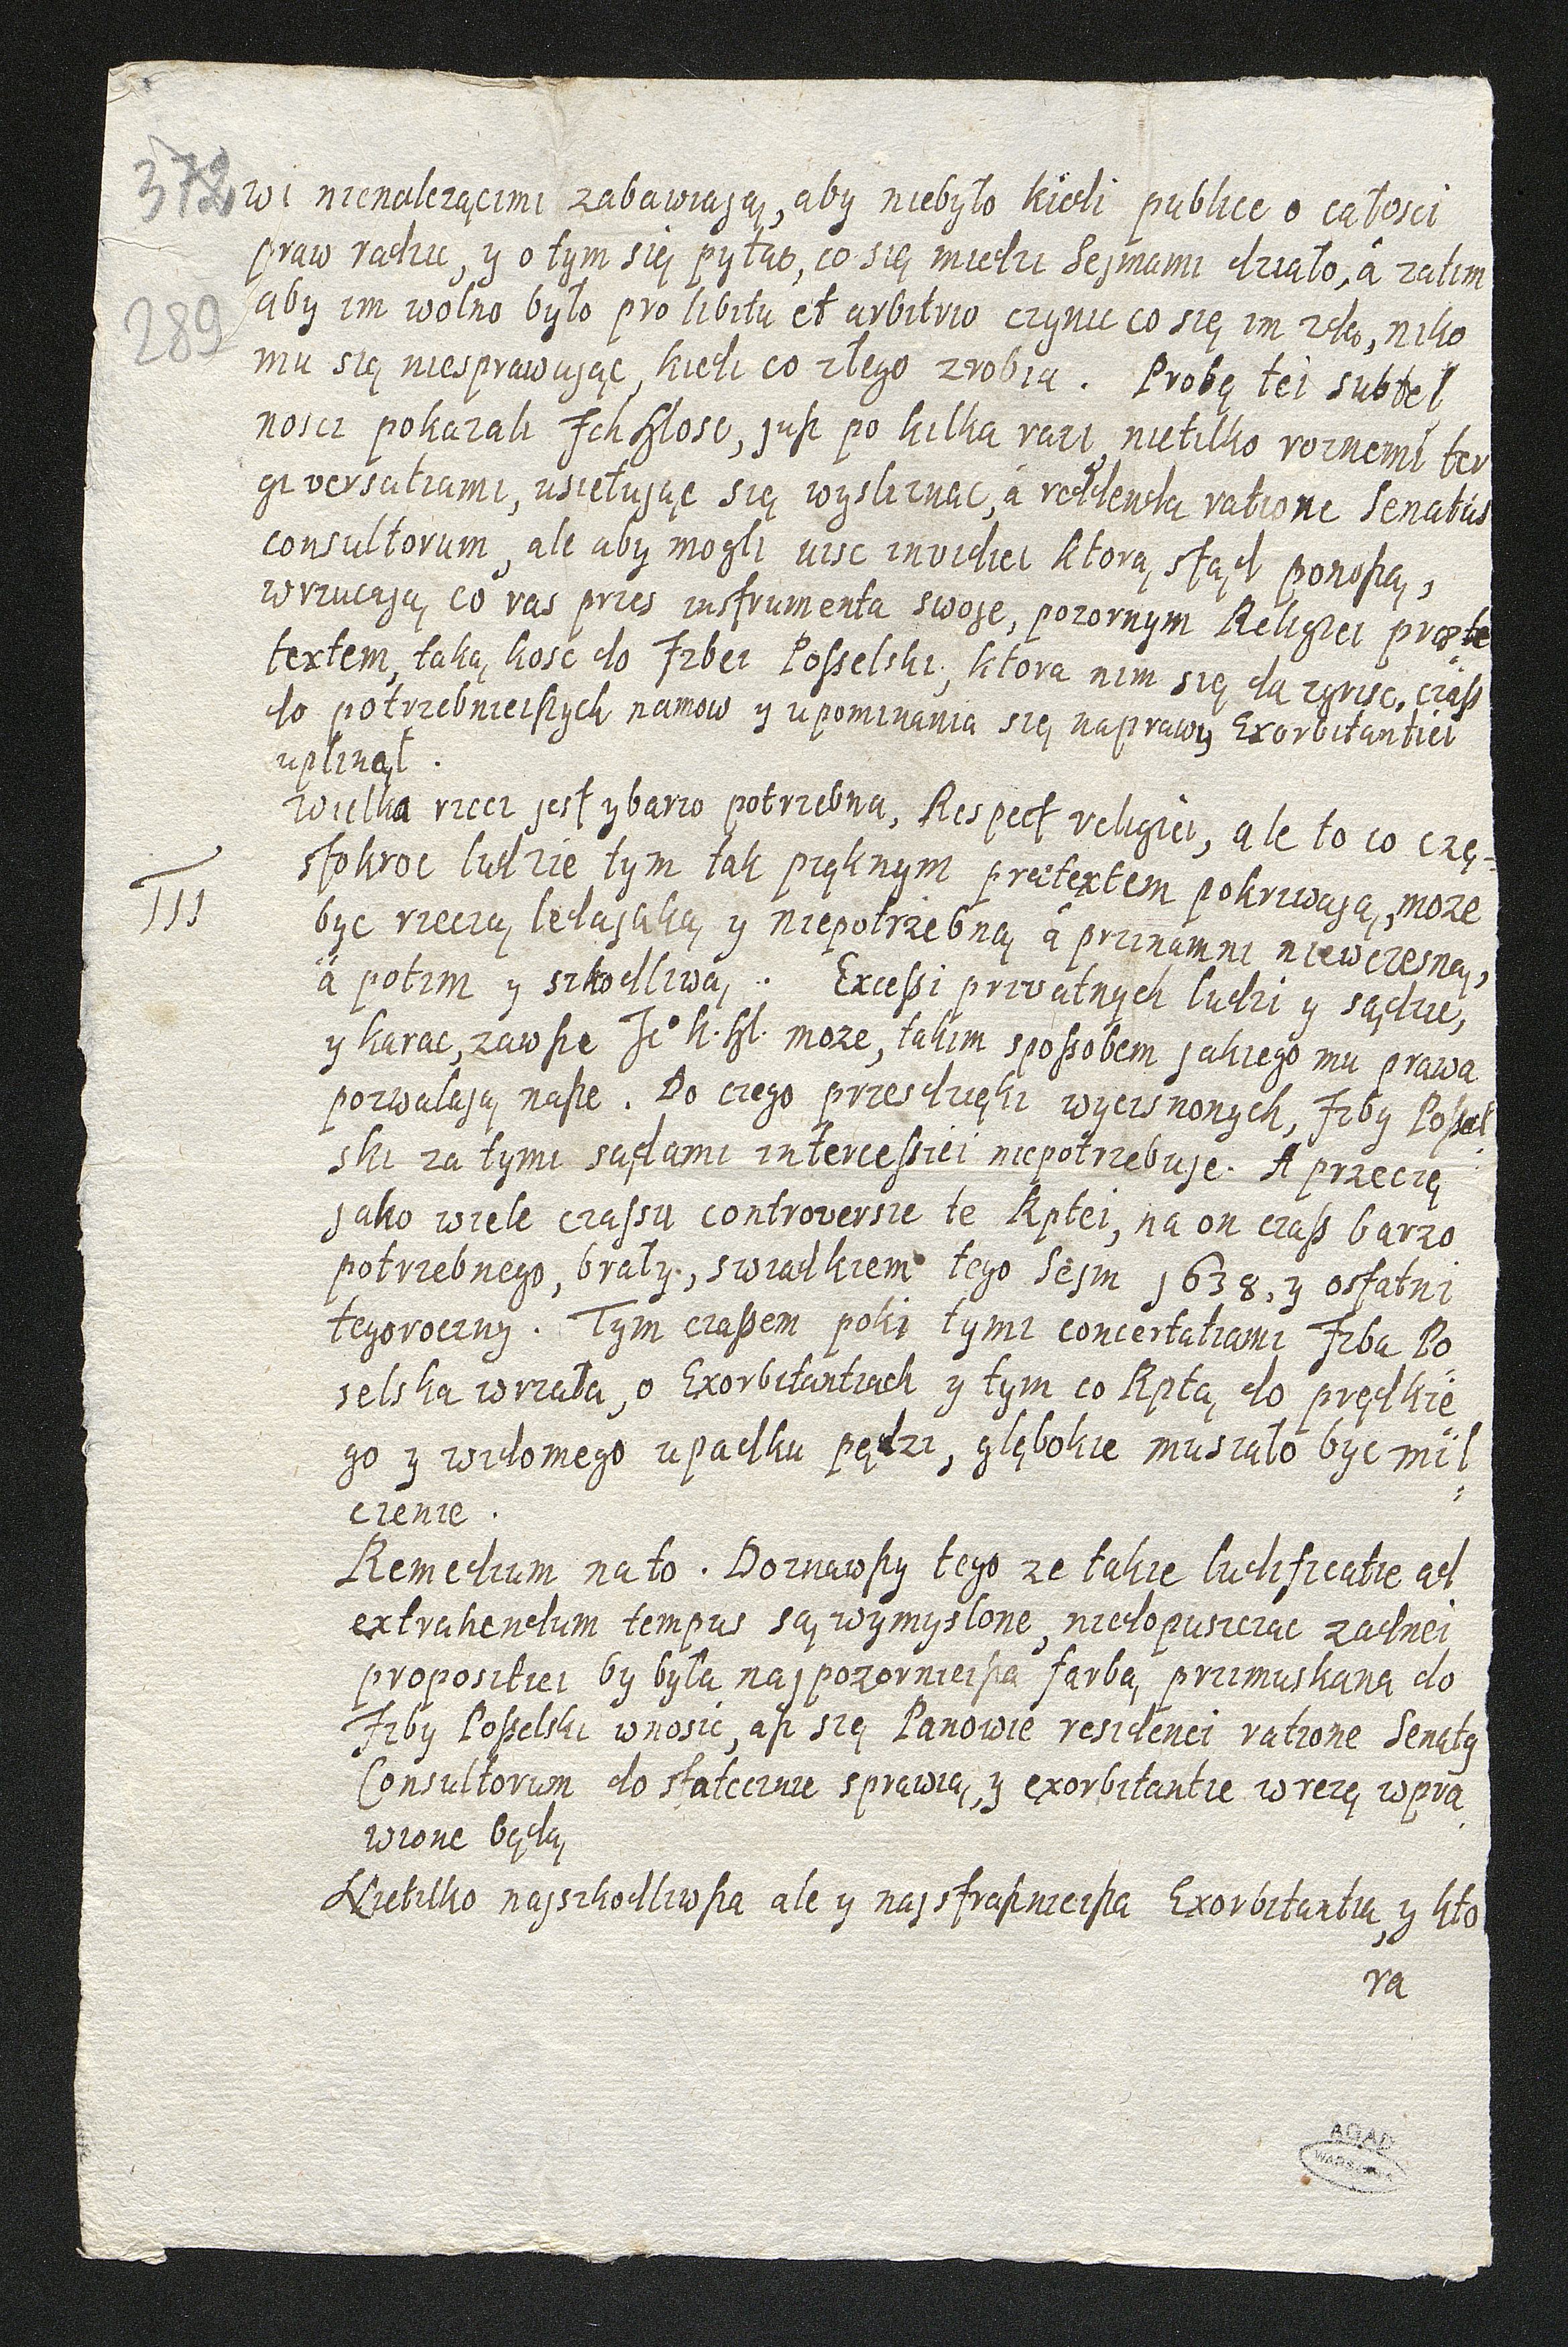 372
wi nienalezącimi zabawiają, aby niebyło kiedi publice o całosci
praw radzic, y o tym się pytac, co się miedzi Sejmami działo, á zatim
289
aby im wolno było pro libitu et arbitrio czynic co się im zda, niko
mu się niesprawując, kiedi co złego zrobia. Probę tei subtel
nosci pokazali Ich Mosc, juß po kilka razi, nietilko roznemi ter
giversatiami, usiełując się wysliznac, á reddenda ratione Senatús
consultorum, ale aby mogli uisc invidiei ktorą stąd ponoßą,
wrzucają co ras przes instrumenta swoje, pozornym Religiei præte
textem, taką kosc do Izbei Posselski, ktora nim się da zgrisc, czaß
do potrzebnieißych namow y upominania się naprawy Exorbitantiei
upłinął.
Wielka rzecz jest y barzo potrzebna, Respect religiei, ale to co czę-
III
stokroc ludzie tym tak pięknym prætextem pokriwają, moze
byc rzeczą ledajaką y niepotrzebną á przinamni niewczesną,
á potim y szkodliwą. Excessi privatnych ludzi y sądzic,
y karac, zawße Je° K. M. moze, takim sposobem jakiego mu prawa
pozwalają naße. Do czego przesdzięki wycisnonych, Izby Possel
ski za tymi sądami intercessiei niepotrzebuje. A przecię
jako wiele czassu controversie te Rptei, na on czaß barzo
potrzebnego, brały, swiadkiem tego Sejm 1638. y ostatni
tegoroczny. Tym czaßem poki tymi concertatiami Izba Po
selska wrzała, o Exorbitantiach y tym co Rptą do prędkie
go y widomego upadku pędzi, głębokie musiało byc mil
czenie.
Remedium na to. Doznawßy tego ze takie ludificatie ad
extrahendum tempus są wymyslone, niedopusczac zadnei
propositiei by była najpozornieißa farbą przimuskana do
Izby Posselski wnosic, aß się Panowie residenci ratione Senatus
Consultorum dostatecznie sprawią, y exorbitantie w rezę wpra
wione będą
Nietilko najszkodliwßa ale y najstraßnieißa Exorbitantia, y kto
ra
AGAD
WARSZAWA